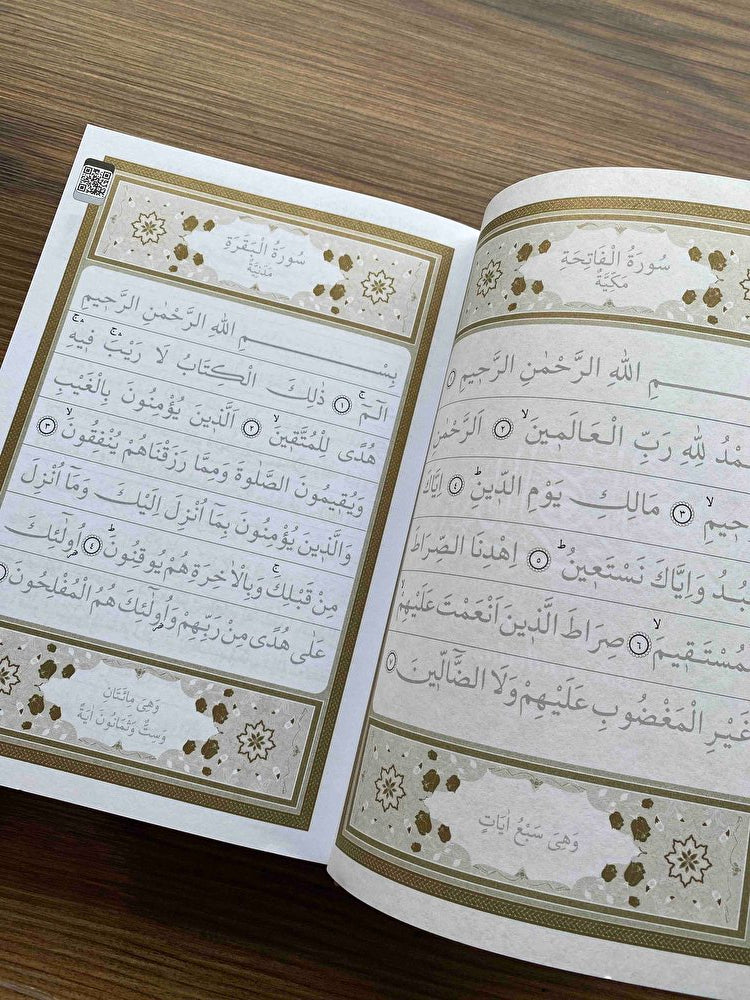 سُورَةُ الْفَاتِحَةِ
مَكِّيَّةٌ
ـمِ اللهِ الرَّحْمٰنِ الرَّحِيمِ ١
ـمْدُ لِلّٰهِ رَبِّ الْعَالَمِينَۙ ٢ اَلرَّحْمٰنِ
ـحِيمِۙ ٣ مَالِكِ يَوْمِ الدِّينِۜ ٤ اِيَّاكَ
ـبُدُ وَاِيَّاكَ نَسْتَعِينُۜ ٥ اِهْدِنَا الصِّرَاطَ
ـمُسْتَقِيمَۙ ٦ صِرَاطَ الَّذِينَ اَنْعَمْتَ عَلَيْهِمْۙ
غَيْرِ الْمَغْضُوبِ عَلَيْهِمْ وَلَا الضَّٓالِّينَ ٧
وَهِيَ سَبْعُ اٰيَاتٍ
سُورَةُ الْبَقَرَةِ
مَدَنِيَّةٌ
بِسْمِ اللهِ الرَّحْمٰنِ الرَّحِيمِ
الٓمٓۚ ١ ذٰلِكَ الْكِتَابُ لَا رَيْبَۚۛ فِيهِۚۛ
هُدًى لِلْمُتَّقِينَۙ ٢ اَلَّذِينَ يُؤْمِنُونَ بِالْغَيْبِ
وَيُقِيمُونَ الصَّلٰوةَ وَمِمَّا رَزَقْنَاهُمْ يُنْفِقُونَۙ ٣
وَالَّذِينَ يُؤْمِنُونَ بِمَٓا اُنْزِلَ اِلَيْكَ وَمَٓا اُنْزِلَ
مِنْ قَبْلِكَۚ وَبِالْاٰخِرَةِ هُمْ يُوقِنُونَۜ ٤ اُو۬لٰٓئِكَ
عَلٰى هُدًى مِنْ رَبِّهِمْ وَاُو۬لٰٓئِكَ هُمُ الْمُفْلِحُونَ
وَهِيَ مِائَتَانِ
وَسِتٌّ وَثَمَانُونَ اٰيَةً